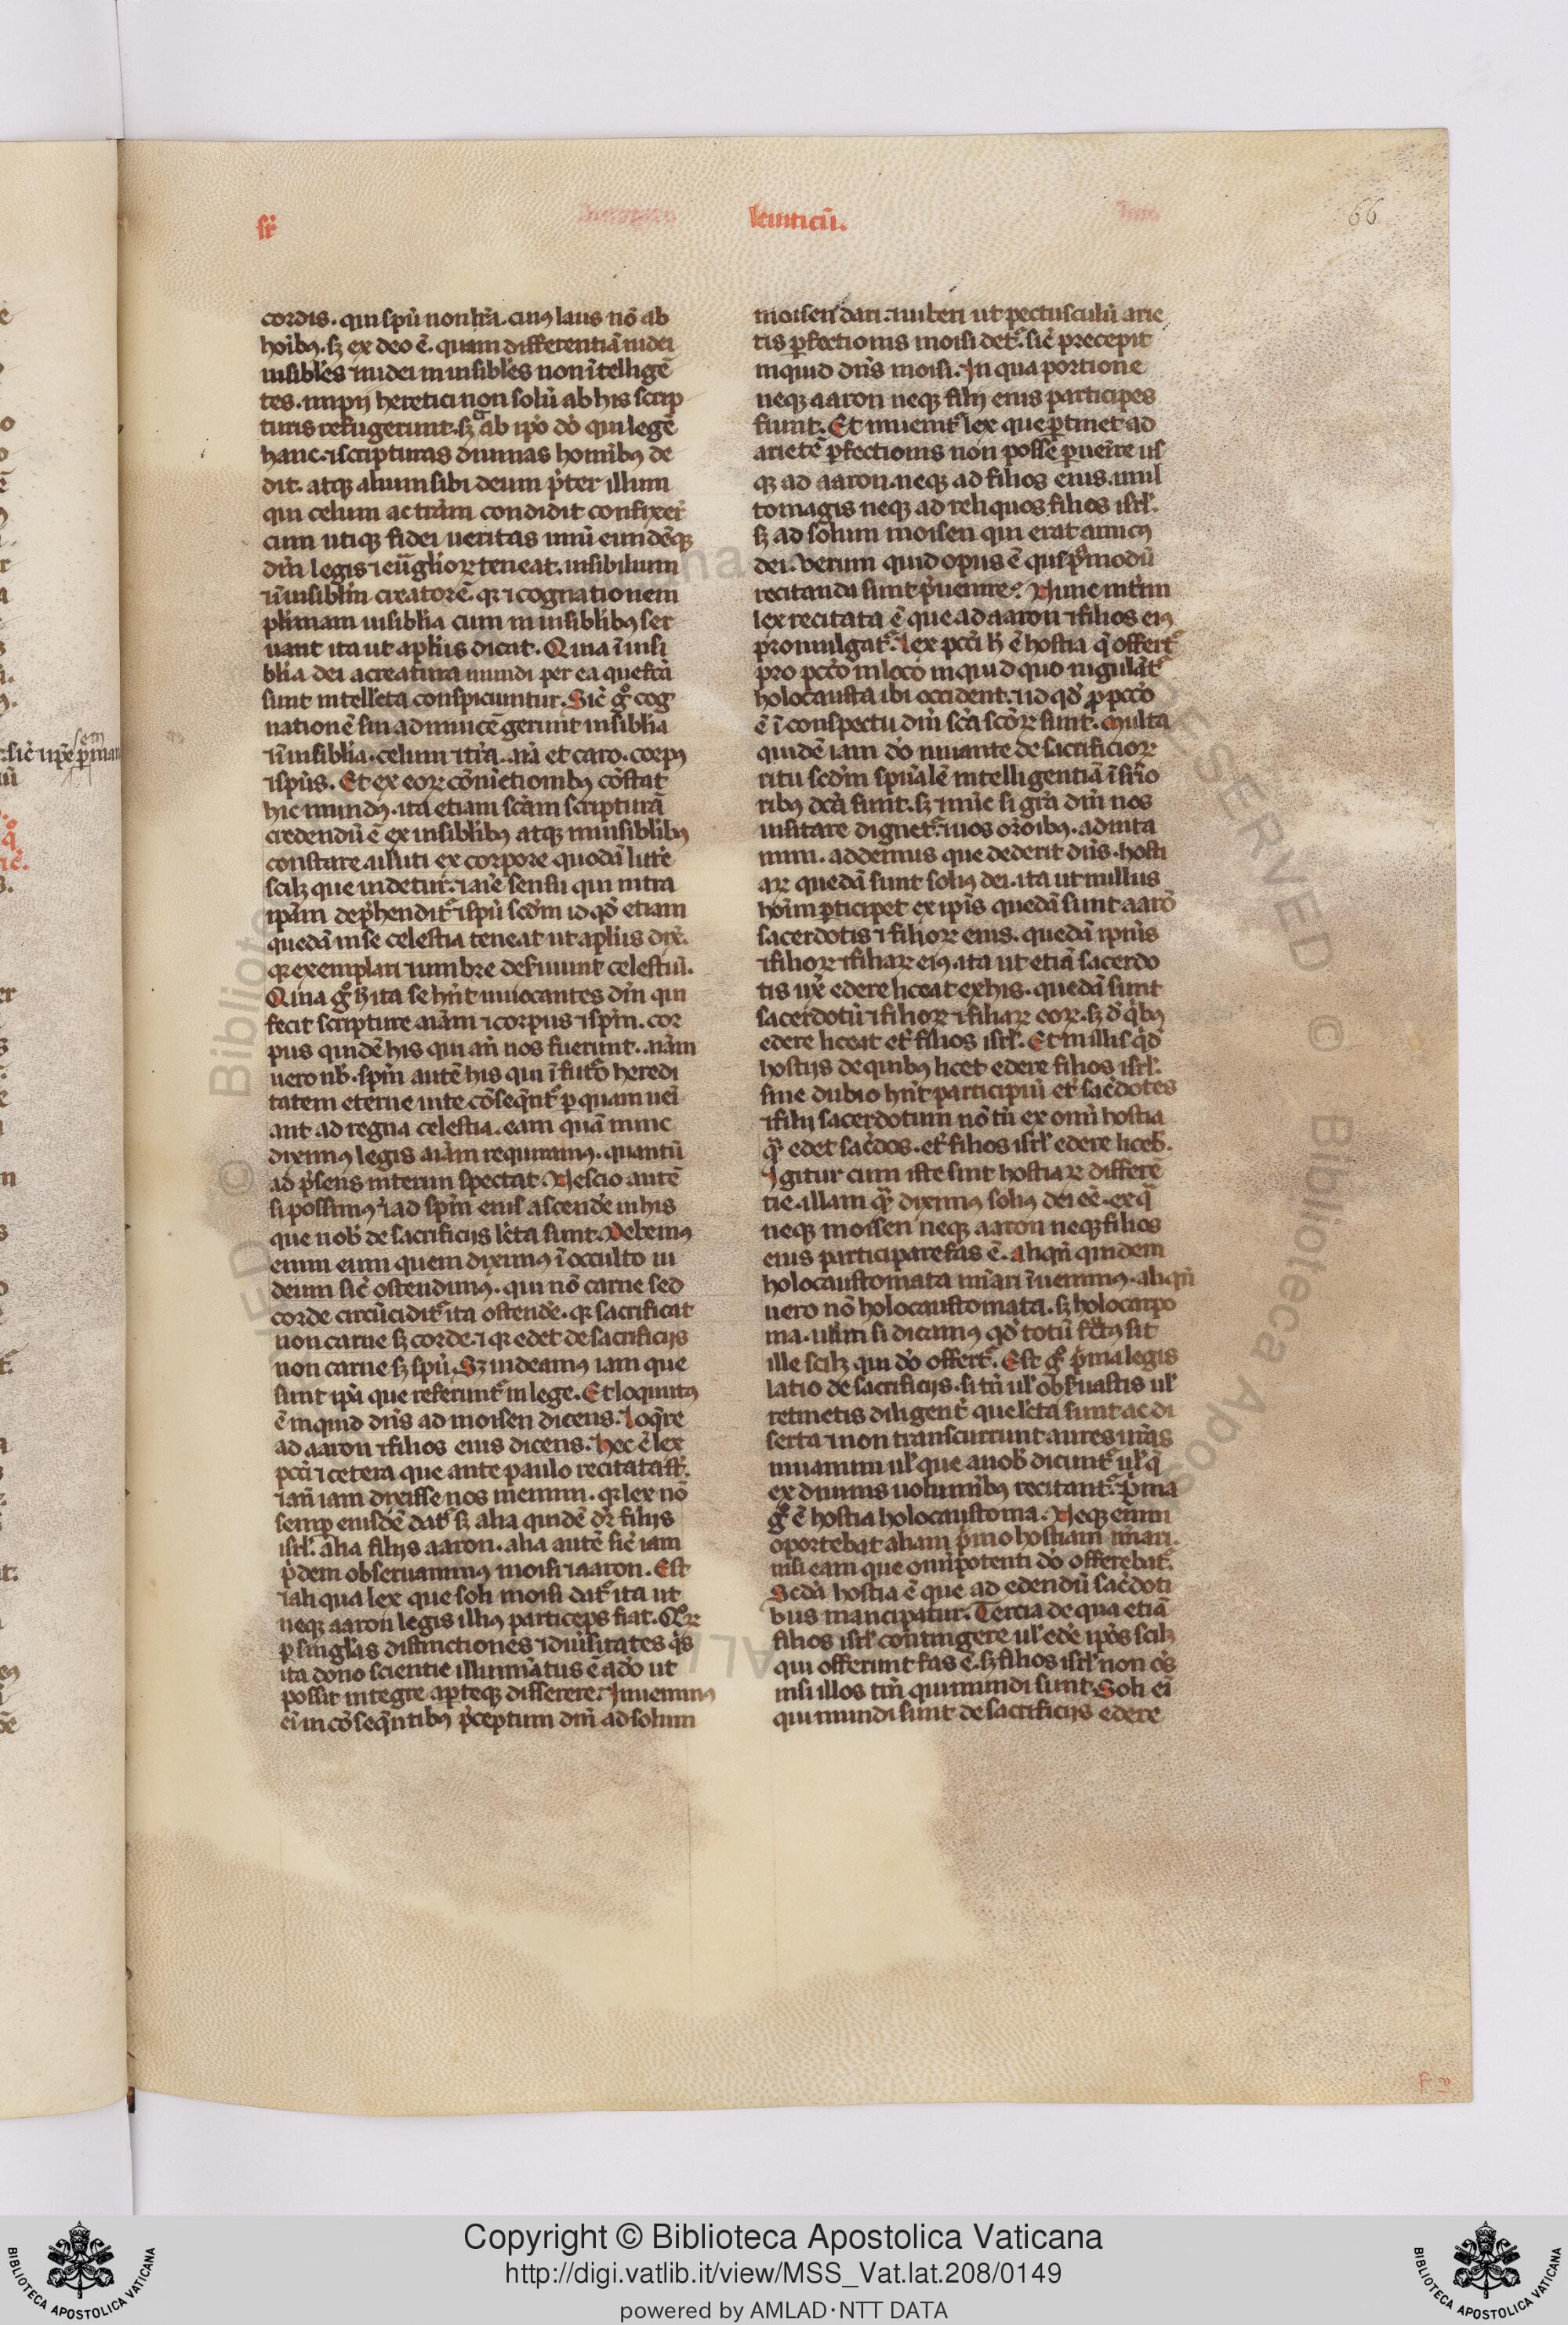 sr̄
leuiticū.
66
cordis. qui spū non lr̄a. cuiꝰ laus nō ab
hoībꝫ. sꝫ ex deo ē. quam differentiā iudei
uisibl'es ⁊ iudei in uisibl'es non ītelligē
tes. impij heretici non solū ab his scrip
turis refugerunt. sꝫ ab ip̄o dō qui legē
hanc. ⁊ scripturas diuinas hominibꝫ de
dit. atqꝫ alium sibi deum p̄ter illum
qui celum ac terrām condidit confixer̄
cum utiqꝫ fidei ueritas unū eundēqꝫ
dm̄ legis ⁊ eu̅glioꝝ teneat. uisibilium
⁊ īuisibliū creatorē. qꝛ ⁊ cognationem
plimam uisiblia cum in uisiblibꝫ ser
uant ita ut apl'us dicat. Quia ī uisi
blia dei a creatura mundi per ea que fc̄a
sunt intell'eta conspiciuntur. Sic̄ gͦ cog
nationē sui ad inuicē gerunt uisiblia
⁊ īuisiblia. celum ⁊ tr̄a. aīa et caro. corpꝰ
⁊ sp̄us. Et ex eoꝝ cōiūctionibꝫ cōstat
hic mundꝰ. ita etiam scām scripturā
credendū ē ex uisiblibꝫ atqꝫ inuisiblibꝫ
constare. ueluti ex corpore quodā lr̄e
scilꝫ que uidetur. ⁊ aīe sensu qui intra
ip̄am dep̄hendit᷑. ⁊ spū scd̄m id qd̄ etiam
quedā in se celestia teneat ut apl'us dix̄.
qꝛ exemplari ⁊ umbre deseruiunt celestiū.
Quia gͦ h̄ ita se hn̄t inuocantes dm̄ qui
fecit scripture aīam ⁊ corpus ⁊ spm̄. cor
pus quidē his qui an̄ nos fuerunt. aīam
uero nob̄. spm̄ autē his qui ī fut̄o heredi
tatem eterne uite cōseqn̄t᷑. ꝑ quam ueī
ant ad regna celestia. eam quā nunc
diximꝰ legis aīam requiramꝰ. quantū
ad p̄sens interim spectat. Nescio autē
si possimꝰ ⁊ ad spm̄ eius ascende in his
que nob̄ de sacrificijs l'eta sunt. Debemꝰ
enim eum quem diximꝰ ī occulto iu
deum sic̄ ostendimꝰ. qui nō carne sed
corde circūcidit᷑. ita ostende. qꝛ sacrificat
non carne sꝫ corde. ⁊ qꝛ edet de sacrificijs
non carne sꝫ spū. Sꝫ uideamꝰ iam que
sunt ip̄a que referunt᷑ in lege. Et loquutꝰ
ē inquid dn̄s ad moisen dicens. Loqr̄e
ad aaron ⁊ filios eius dicens. Hec ē lex
pcc̄i ⁊ cetera que ante paulo recitata st̄.
⁊ an̄ iam dixisse nos memini. qꝛ lex nō
semꝑ eiusdē dat᷑. sꝫ alia quidē dr̄ filijs
isrl'. alia filijs aaron. alia autē sic̄ iam
p̄dem obseruauimꝰ moisi ⁊ aaron. Est
⁊ aliqua lex que soli moisi dat᷑. ita ut
neqꝫ aaron legis illiꝰ particeps fiat. Quoꝝ
ꝑ singl'as distinctiones ⁊ diuisitates qͥs
ita dono scientie illuminatus ē a dō ut
possit integre aꝑteqꝫ disserere. Inuenimꝰ
eī in cōseqn̄tibꝫ p̄ceptum dm̄ ad solum
moisen dari. ⁊ iuberi ut pectusculū arie
tis ꝑfectionis moisi det᷑. sic̄ precepit
inquid dn̄s moisi. In qua portione
neqꝫ aaron neqꝫ filij eius participes
fiunt. Et inuenit᷑ lex que ꝑtinet ad
arietē ꝑfectionis non posse ꝑuenire us
qꝫ ad aaron. neqꝫ ad filios eius. mul
tomagis neqꝫ ad reliquos filios isrl'.
sꝫ ad solum moisen qui erat amicꝰ
dei. Verum quid opus ē quēpͣmodū
recitanda sunt p̄uenire? Nunc int̄im
lex recitata ē que ad aaron ⁊ filios eiꝰ
promulgat᷑. Lex pcc̄i h̄ ē hostia q̄ offert᷑
pro pcc̄o in loco inquid quo iugulāt᷑
holocausta ibi occident. ⁊ id qd̄ ꝓ pcc̄o
ē ī conspectu dm̄ scā scōꝝ sunt. Multa
quidē iam dō iuuante de sacrificioꝝ
ritu scd̄m spūalē intelligentiā ī suꝑio
ribꝫ dcā sunt. sꝫ ⁊ nūc si gr̄a dm̄ nos
uisitare dignet᷑. ⁊ uos or̄oibꝫ. adiuta
mini. addemus que dederit dn̄s. hosti
aꝝ quedā sunt soliꝰ dei. ita ut nullus
hoīm ꝑticipet ex ip̄is quedā sunt aarō
sacerdotis ⁊ filioꝝ eius. quedā ip̄ius
⁊ filioꝝ ⁊ filiaꝝ eiꝰ. ita ut etiā sacerdo
tis ux̄ edere liceat ex his. quedā sunt
sacerdotū ⁊ filioꝝ ⁊ filiaꝝ eoꝝ. sꝫ d̄ qͥbꝫ
edere liceat et̄ filios isrl'. Et in illis qͥd̄
hostijs de quibꝫ licet edere filios isrl'.
sine dubio hn̄t participiū et̄ sac̄dotes
⁊ filij sacerdotum nō tn̄ ex omī hostia
qͣ edet sac̄dos. et̄ filios isrl' edere liceb̄.
Igitur cum iste sint hostiaꝝ differē
tie. illam qͣ diximꝰ soliꝰ dei eē. ex qͣ
neqꝫ moisen neqꝫ aaron neqꝫ filios
eius participare fas ē. aliqn̄ quidem
holocaustomata nn̄ari īuenimꝰ. aliqn̄
uero nō holocaustomata. sꝫ holocarpo
ma. ulim si dicamꝰ qd̄ totū fr̄ctꝰ sit
ille scilꝫ qui dō offert᷑. Est gͦ p̄ma legis
latio de sacrificijs. si tn̄ ul' obseruastis ul'
retinetis diligent̄ que l'eta sunt ac di
serta ⁊ non transcurrunt aures ur̄as
inuanum ul' que a nob̄ dicunt᷑ ul' q̄
ex diuinis uoluminibꝫ recitant᷑. P̄ma
gͦ ē hostia holocaustoma. Neqꝫ enim
oportebat aliam p̄mo hostiam nn̄ari.
nisi eam que omīpotenti dō offerebat᷑.
Scd̄a hostia ē que ad edendū sac̄doti
bus mancipatur. Tercia de qua etiā
filios isrl' contingere ul' ede ip̄os scilꝫ
qui offerunt fas ē. sꝫ filios isrl' non oēs
nisi illos tm̄ qui mundi sunt. Soli eī
qui mundi sunt de sacrificijs edere
Copyright © Biblioteca Apostolica Vaticana
http://digi.vatlib.it/view/MSS_Vat.lat.208/0149
powered by AMLAD·NTT DATA
BIBLIOTECA APOSTOLICA VATICANA
BIBLIOTECA APOSTOLICA VATICANA